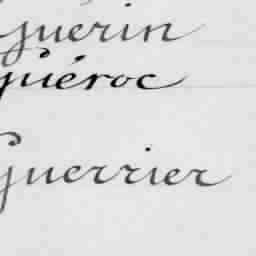 Guerin
Guéroc
Guerrier